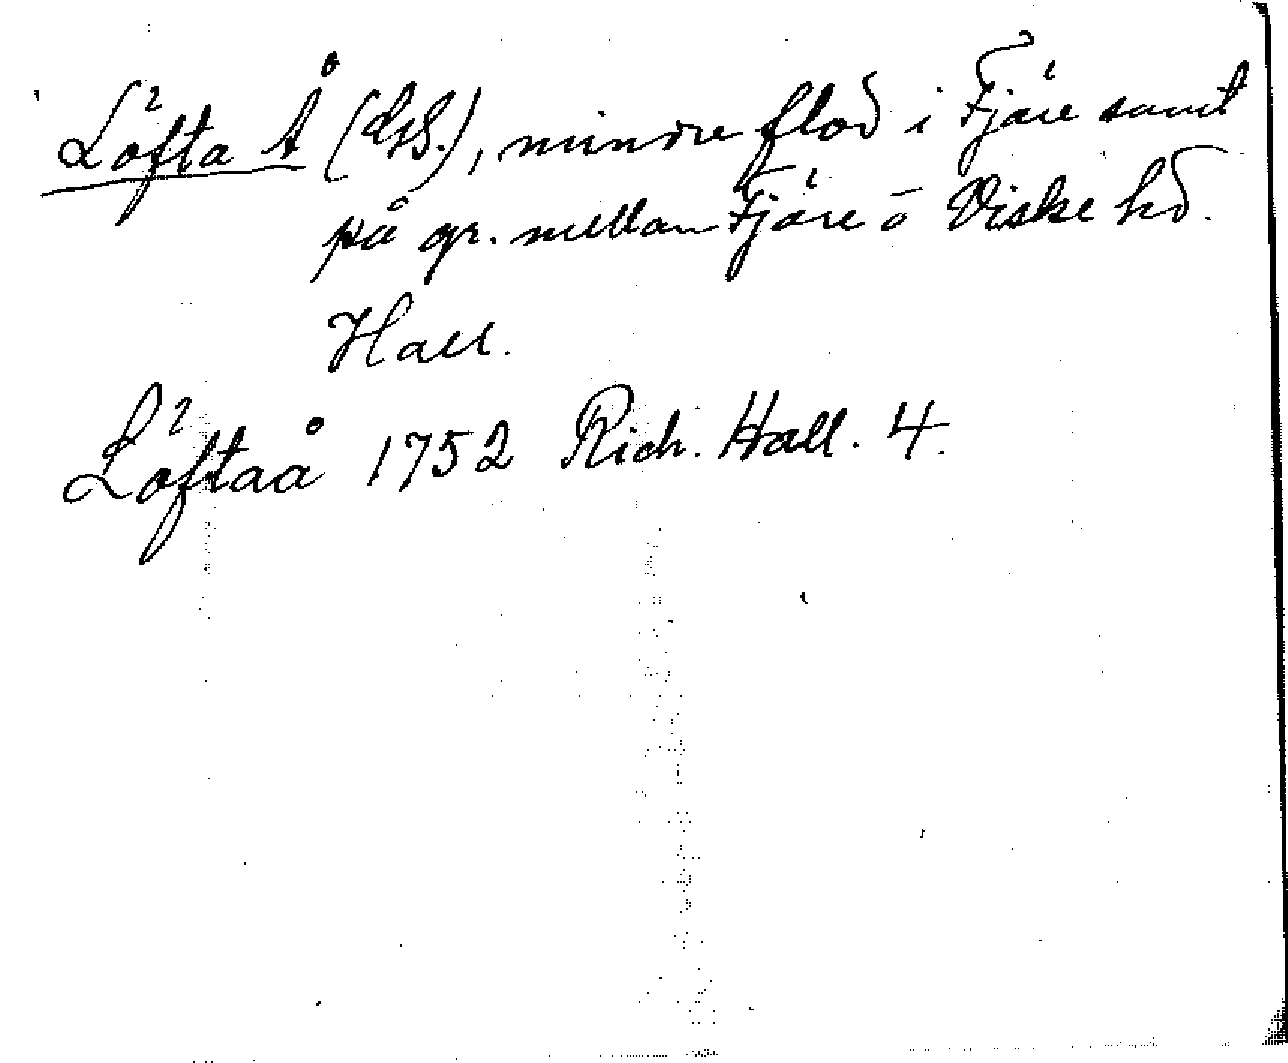 Löfta Å (GS.), mindre flod i Fjäre samt
på gr. mellan Fjäre o Viske hd.
Hall.
Löftaå 1752 Rich. Hall. 4.